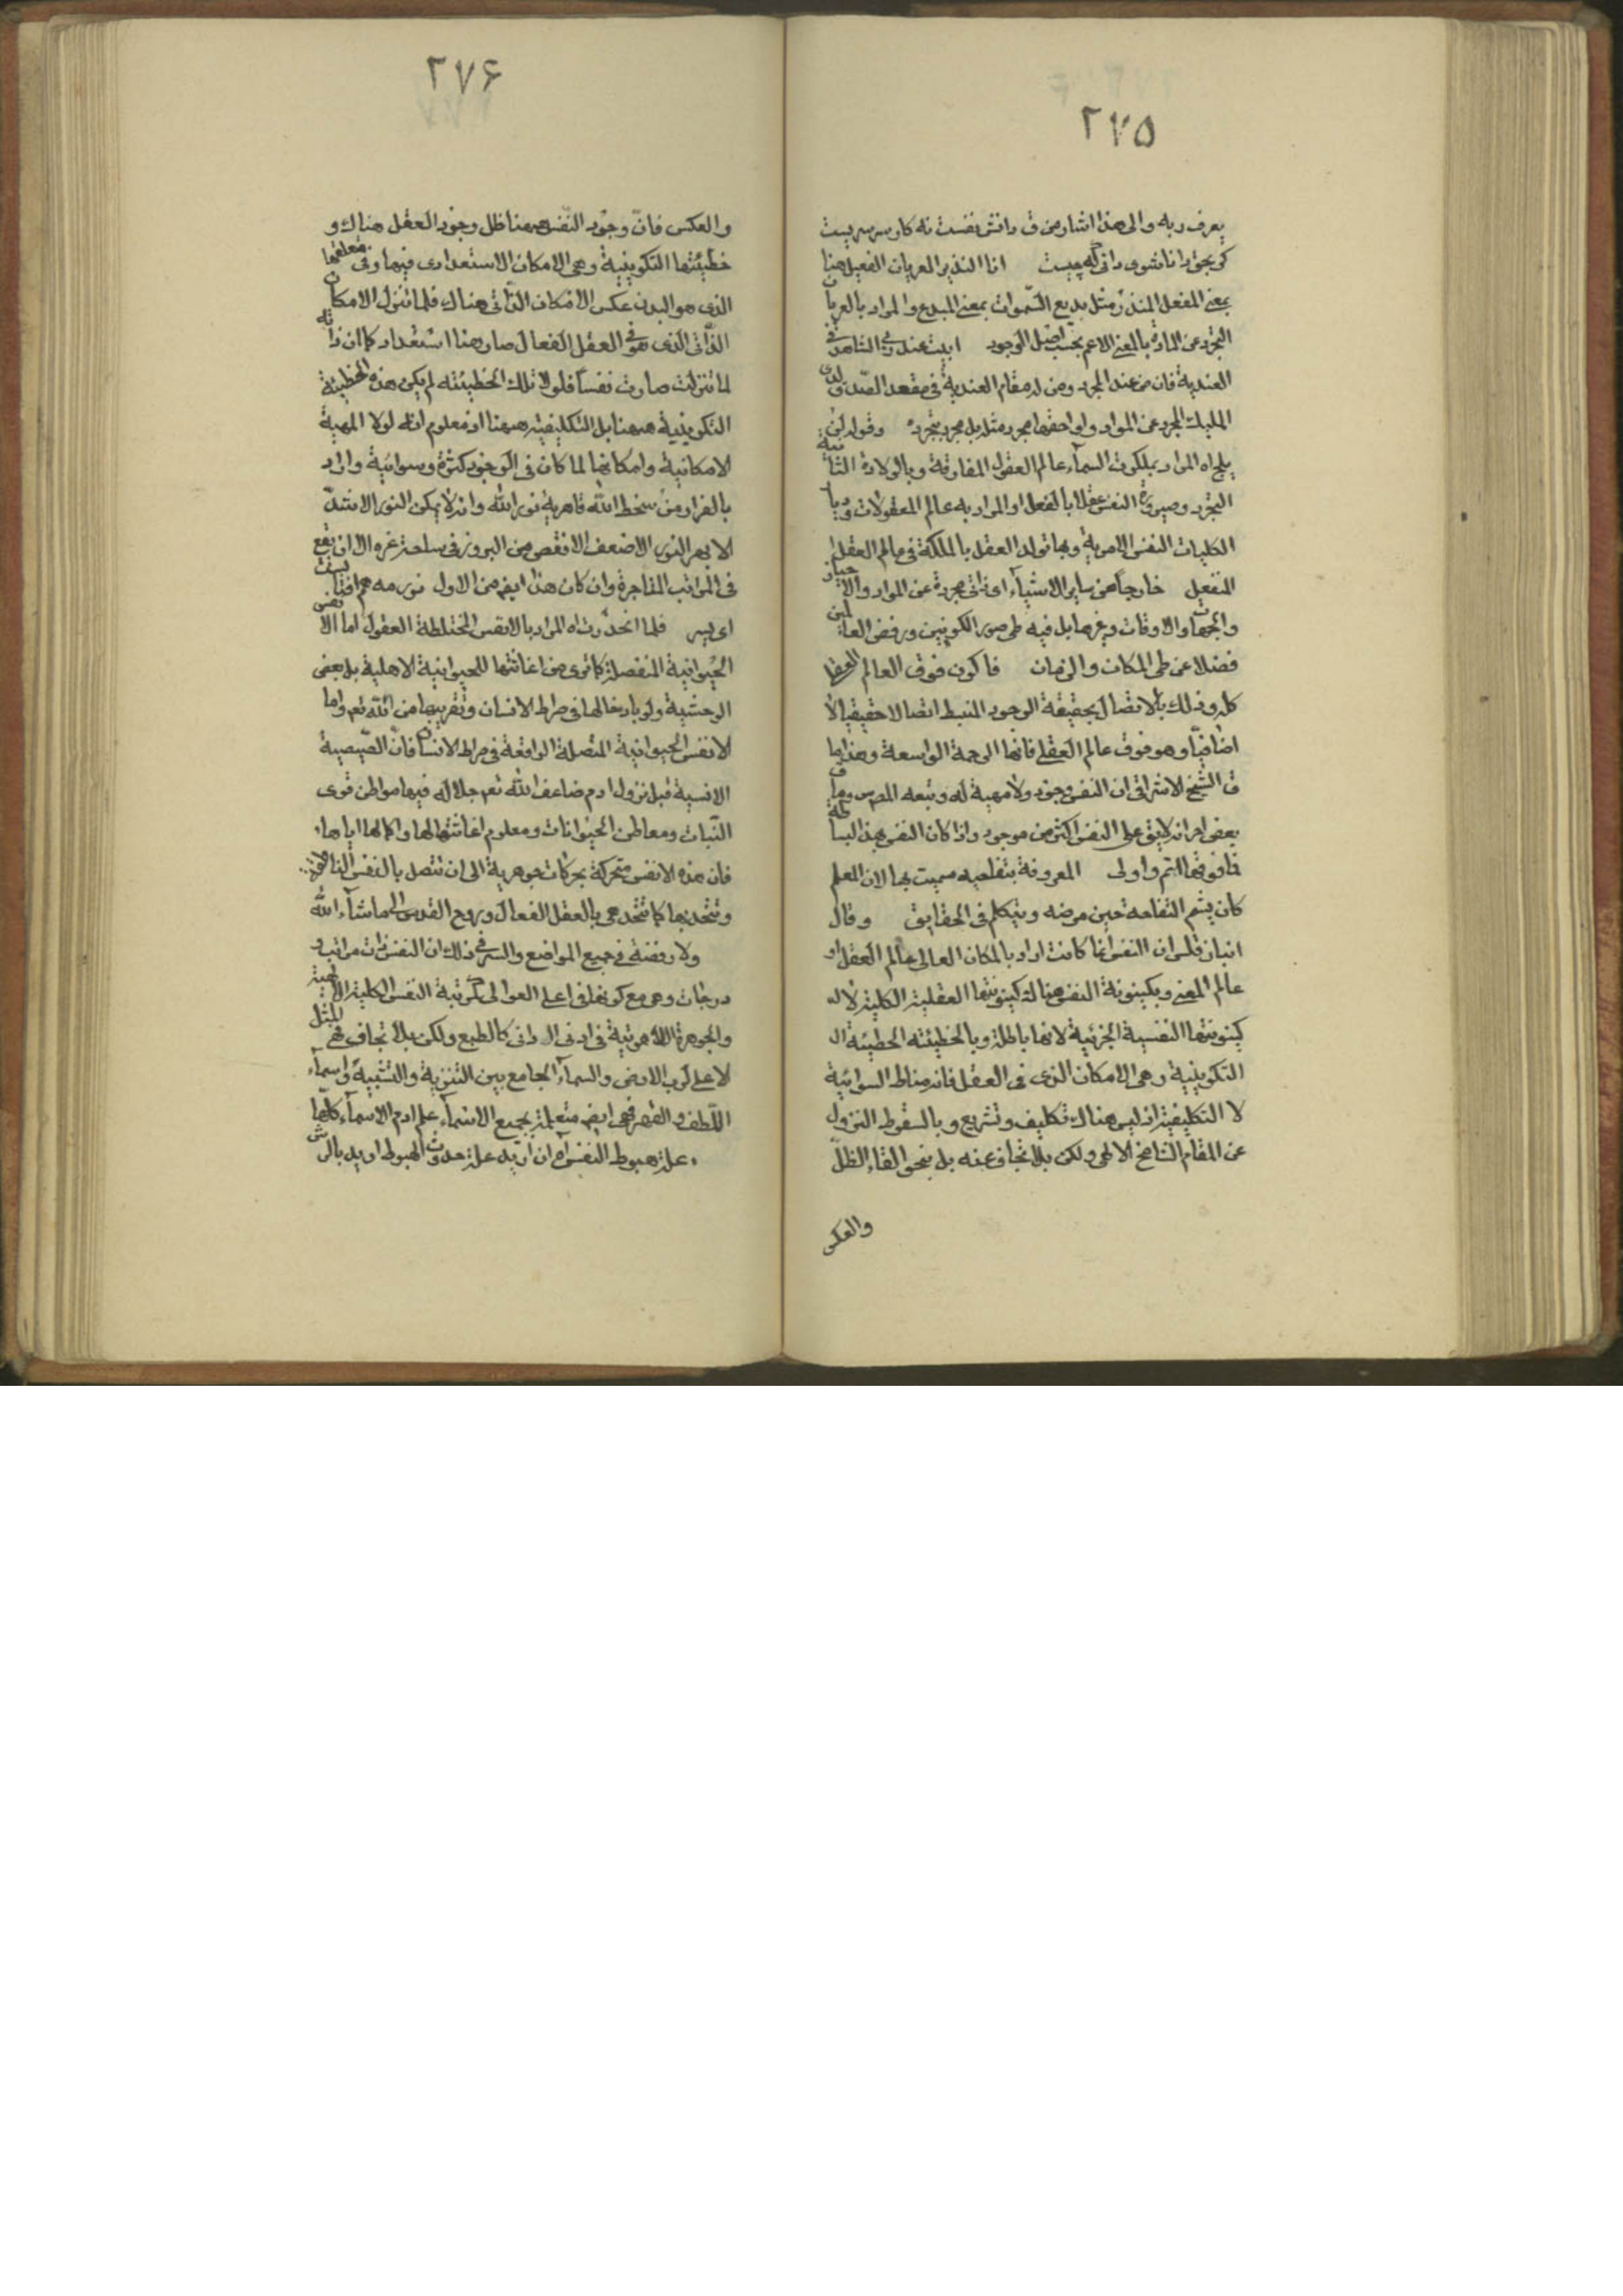 ٢٧٥
يعرف ربه والى هذا اشار من ق دانش نفست نه كار سرسريست
كر بحق دانا شوى دانى كه چيست انا النذير العريان الفعيل هنا
بمعنى المفعل المنذر مثل بديع السموات بمعنى المبدع والمراد بالعريان
التجرد عن المادة بالمعنى الاعم بحسب اصل الوجود ابيت عند ربى الشاهد فى
العندية فان من عند المجرد ومن له مقام العندية فى مقعد الصدق ولدى
المليك المجرد عن المواد ولواحقها مجرد مثله بل مجرد بتجرده وقوله لن
يلج اه المراد بملكوت السماء عالم العقول المفارقة وبالولادة الثانية
التجرد وصيرورة النفس عقلا بالفعل او المراد به عالم المعقولات ودبا
الكليات النفس الامرية وبها تولد العقل بالملكة فى عالم العقل
المنفعل خارجا عن ساير الاشياء اى ذاتى مجردة عن المواد والاحياز
والجهات والاوقات وغيرها بل فيه طى صور الكونين ورفض العالمين
فضلا عن طى المكان والزمان فاكون فوق العالم العقلى
كله وذلك بالاتصال بحقيقة الوجود المنبسط اتصالا حقيقيا لا
اضافيا وهو فوق عالم العقل فانها الرحمة الواسعة وهذا ما
ق الشيخ الاشراقى ان النفس وجود ولا مهية له وتبعه المص وما ق
بعض اخر انه لايق على النفس اكثر من موجود واذا كان النفس بهذا البساطة
فما فوقها اتم واولى المعروفة بتفاحيه سميت بها لان المعلم
كان يشم التفاحة حين مرضه ويتكلم فى الحقايق وقال
انباذقلس ان النفس انما كانت اراد بالمكان العالى عالم العقل او
عالم المعنى وبكينونة النفس هناك كينونتها العقلية الكلية لا
كينونتها النفسية الجزئية لانها باطلة وبالخطيئته الخطيئة
التكوينية وهى الامكان الذى فى العقل فانه مناط السوائية
لا التكليفية اذ ليس هناك تكليف وتشريع وبالسقوط النزول
عن المقام الشامخ الالهى ولكن بلا تجاف عنه بل بنحو القاء الظل
والعكس
٢٧۶
والعكس فان وجود النفس هيهنا ظل وجود العقل هناك و
خطيئتها التكوينية وهى الامكان الاستعدادى فيها وفى متعلقها
الذى هو البدن عكس الامكان الذاتى هناك فلما تنزل الامكان
الذاتى الذى هو فى العقل الفعال صار هنا استعداد كما ان ذاته
لما تنزلت صارت نفسا فلولا تلك الخطيئته لم يكن هذه الخطيئة
التكوينية هيهنا بل التكليفية هيهنا اذ معلوم انه لولا المهية
الامكانية وامكانها لما كان فى الوجود كثرة وسوائية واراد
بالفرار من سخط الله قاهرية نور الله وانه لا يمكن النور الاشد
الابهر النور الاضعف الانقص من البروز فى ساحة غيره الا ان يقع
فى المراتب المتاخرة وان كان هذا ايض من الاول نور مه هم افتابست
اى پسر فلما انحدرت اه المراد بالانفس المختلطة العقول اما الانفس
الحيوانية المنفصلة كما ترى من اغاثتها للحيوانية الاهلية بل بعض
الوحشية ولو بادخالها فى صراط الانسان وتقريبها من الله تع واما
الانفس الحيوانية المتصلة الواقعة فى صراط الانسان فان الصيصية
الانسية قبل نزول ادم ضاعف الله تع جلاله فيها مواطن قوى
النبات ومعاطن الحيوانات ومعلوم اغاثتها لها واكمالها اياها
فان هذه الانفس متحركة بحركات جوهرية الى ان تتصل بالنفس الناطقة
وتتحد بها كما تتحد هى بالعقل الفعال وروح القدس الى ما شاء الله
ولا رفضته فى جميع المواضع والسر فى ذلك ان النفس ذات مراتب و
درجات وهى مع كونها فى اعلى العوالى كمرتبة النفس الكلية الالهية
والجوهرة اللاهوتية فى ادنى الادانى كالطبع ولكن بلا تجاف فهى المثل
الاعلى لرب الارض والسماء الجامع بين التنزيه والتشبيه واسماء
اللطف والقهر فهى ايض متعلمة بجميع الاسماء علم ادم الاسماء كلها
علة هبوط النفس اه ان اريد علة حدوث الهبوط اريد بالريش